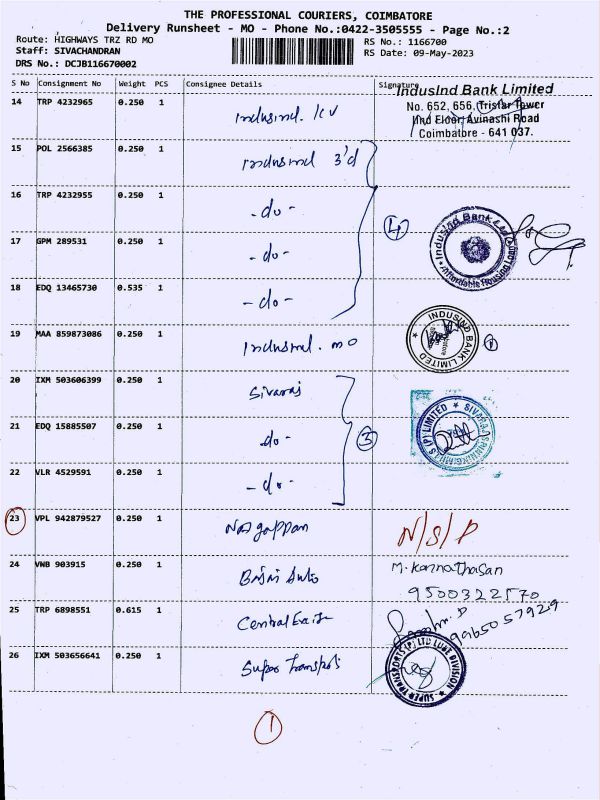 THE PROFESSIONAL COURIERS, COIMBATORE
Delivery Runsheet - MO - Phone No.:0422-3505555 - Page No.:2
Route: HIGHWAYS TRZ RD MO
RS No.: 1166700
Staff: SIVACHANDRAN
RS Date: 09-May-2023
DRS No.: DCJB116670002
S No Consignment No Weight PCS Consignee Details Signature
IndusInd Bank Limited
No. 652, 656, Tristar Tower
IInd Floor Avinashi Road
Coimbatore - 641 037.
14 TRP 4232965 0.250 1 Indusind.
15 POL 2566385 0.250 1 Indusind 3'd
16 TRP 4232955 0.250 1 -do-
4
17 GPM 289531 0.250 1 -do-
IndusInd Bank Ltd
Affordable Housing
18 EDQ 13465730 0.535 1 -do-
19 MAA 859873086 0.250 1 Indusind. MO
INDUSIND BANK LIMITED
1
20 IXM 503606399 0.250 1 Sivaraj
21 EDQ 15885507 0.250 1 do-
3
(P) LIMITED
22 VLR 4529591 0.250 1 -do-
23 VPL 942879527 0.250 1 Nagappan N/S/P
24 VNB 903915 0.250 1 M. Kannathasan
9500322570
25 TRP 6898551 0.615 1 Central
9965057929
26 IXM 503656641 0.250 1 Super Transports
SUPER TRANSPORTS (P) LTD LUBE DIVISION
1